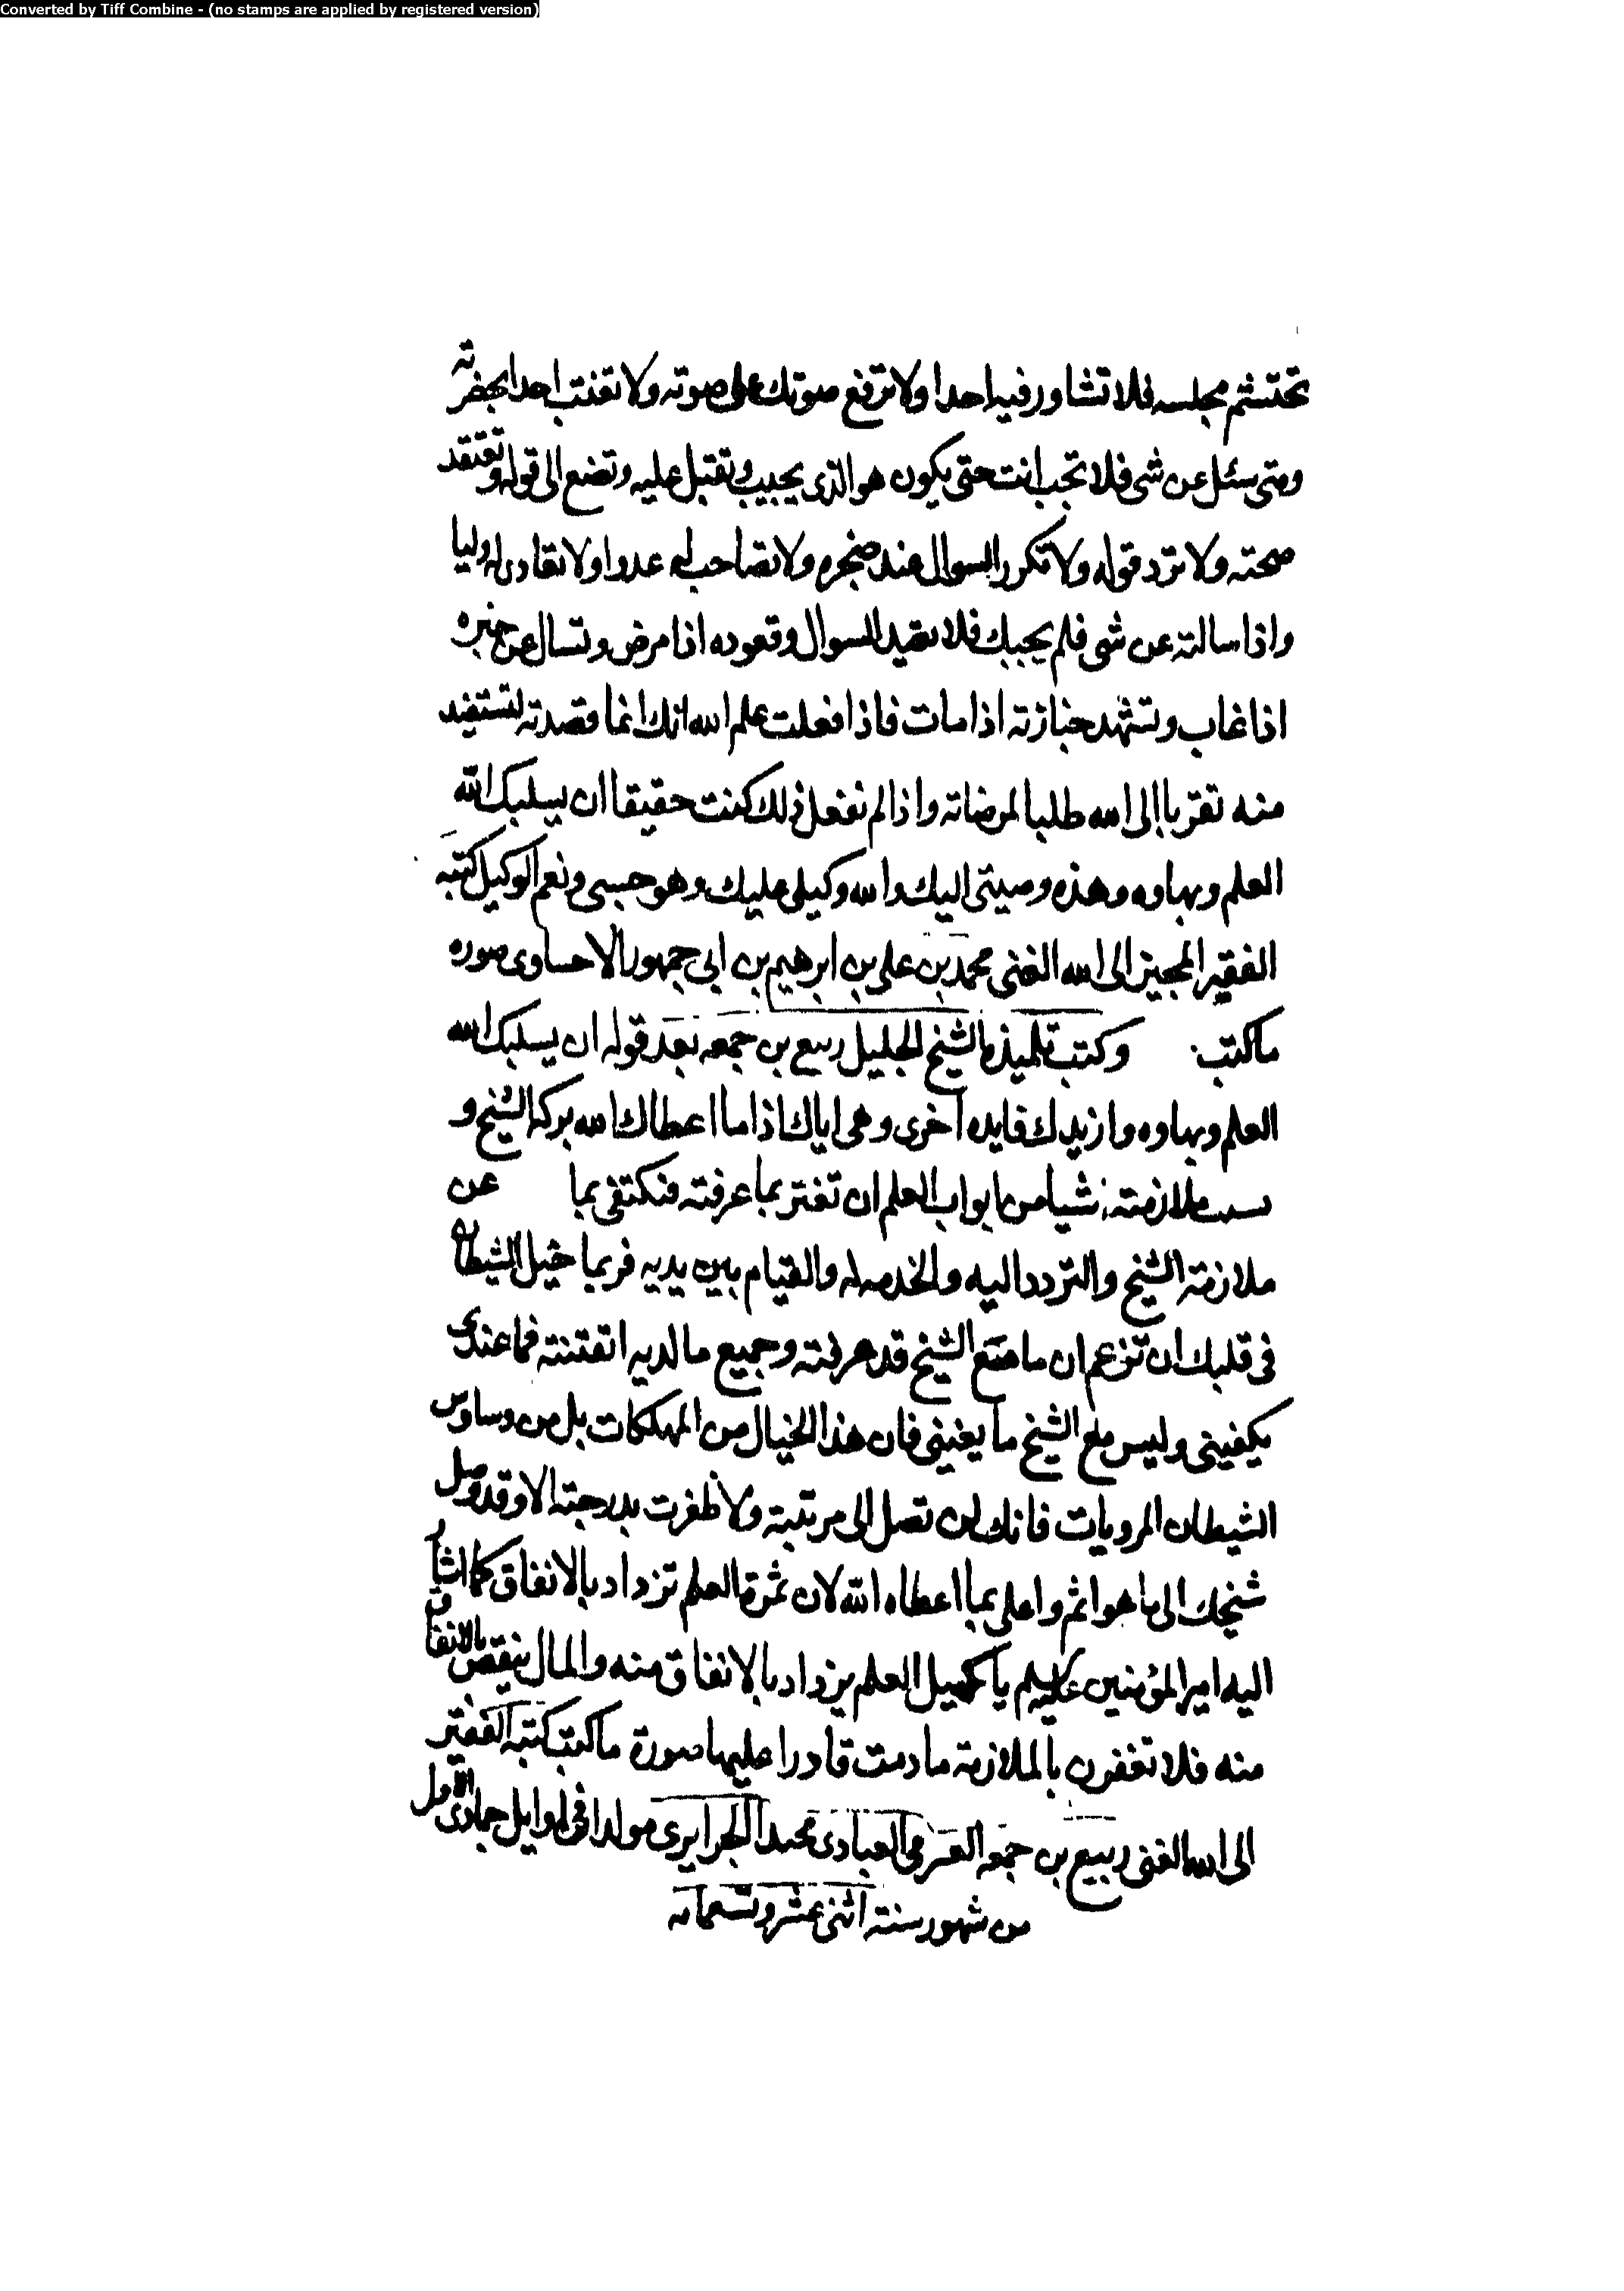 Converted by Tiff Combine - (no stamps are applied by registered version)
تحتشم مجلسه فلا تشاور فيه احدا ولا ترفع صوتك على صوته ولا تغتب احدا بحضرته
ومتى سئل عن شى فلا تجب انت حتى يكون هو الذى يجيب وتقبل عليه وتضع الى قوله وتعتقد
صحته ولا ترد قوله ولا تكرر السوال عند ضجره ولا تصاحب له عدوا ولا تعادى له وليا
واذا سالته عن شى فلم يجبك فلا تعيد السوال وتعوده اذا مرض وتسال عن خبره
اذا غاب وتشهد جنازته اذا مات فاذا فعلت علم الله انك انما قصدته لتستفيد
منه تقربا الى الله طلبا لمرضاته واذا لم تفعل ذلك كنت حقيقا ان يسلبك الله
العلم وبهاوه وهذه وصيتى اليك والله وكيلى عليك وهو حسبى ونعم الوكيل كتبه
الفقير المجيز الى الله الغنى محمد بن على بن ابرهيم بن ابى جمهور الاحساوى صوره
ما كتب وكتب تلميذه الشيخ الجليل ربيع بن جمعه بعد قوله ان يسلبك الله
العلم وبهاوه وازيدك فايده اخرى وهى اياك اذا ما اعطاك الله بركه الشيخ و
بسبب ملازمته شيا من ابواب العلم ان تغتر بما عرفته فتكتفى بما عن
ملازمة الشيخ والتردد اليه والخدمه له والقيام بين يديه فربما خيل الشيطان
فى قلبك ان تزعم ان ما مع الشيخ قد عرفته وجميع ما لديه اتقنته فما عندى
يكفينى وليس مع الشيخ ما يغنينى فان هذا الخيال من المهلكات بل من وساوس
الشيطان المرويات فانك لن تصل الى مرتبة ولا ظفرت بدرجة الا وقد وصل
شيخك الى ما هو اتم واعلى بما اعطاه الله لان ثمرة العلم تزداد بالانفاق كما اشار
اليه امير المؤمنين عليه السلم يا كميل العلم يزداد بالانفاق منه والمال ينقص بالانفاق
منه فلا تغفرن بالملازمة ما دمت قادرا عليها صورة ما كتب كتبه الفقير
الى الله الغنى ربيع بن جمعه العبادى محتدا الجزايرى مولدا فى اوايل جمادى الاول
من شهور سنة اثنى عشر وتسعمائه